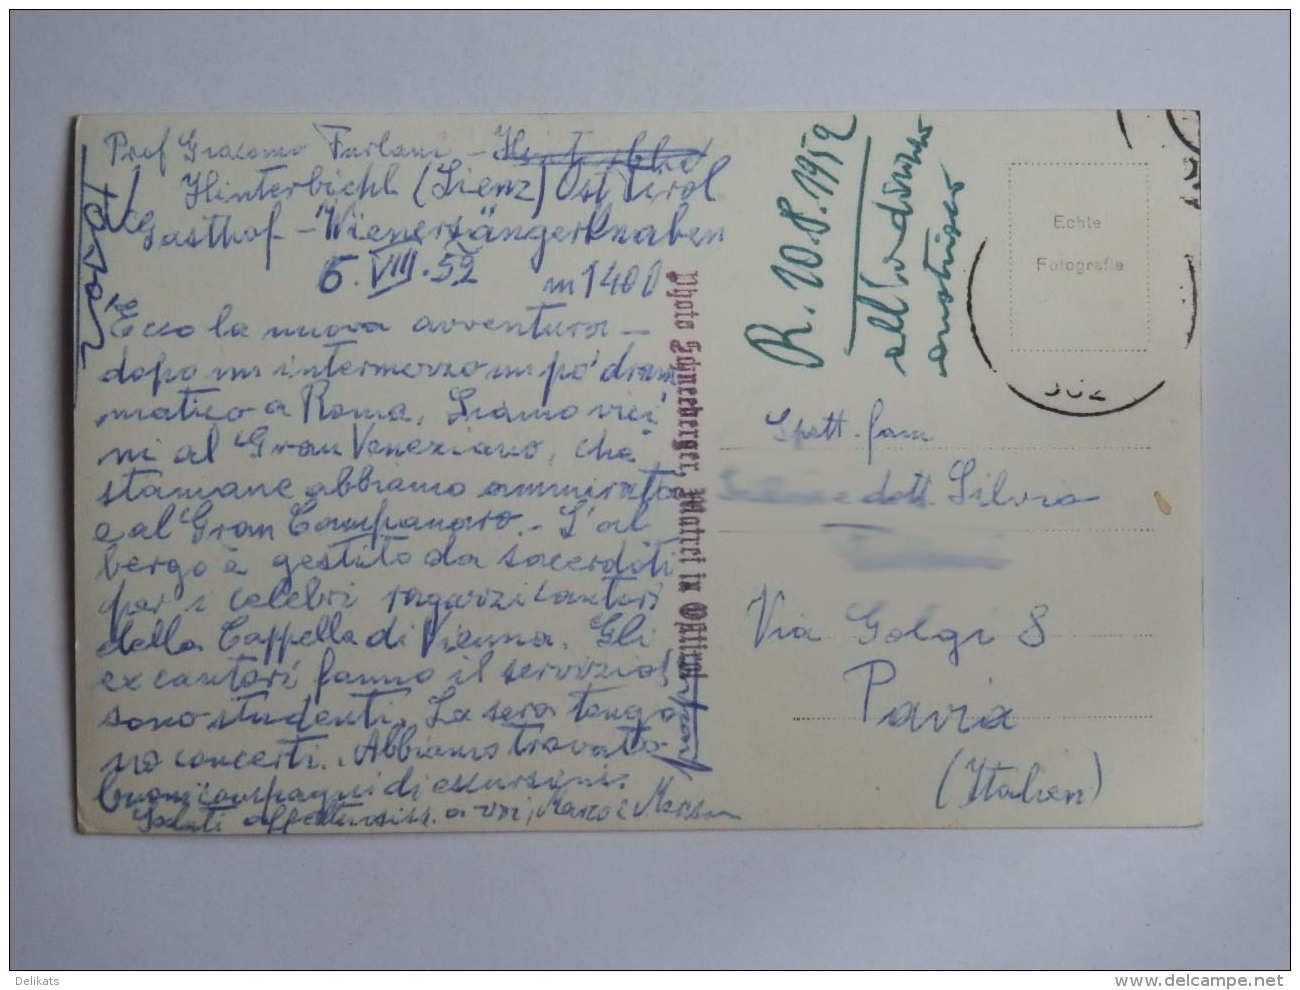 Prof Giacomo Furlani -
Hinterbichl (Lienz) Ost Tirol
Gasthof - Wienersängerknaben
6. VIII. 52 m 1400
Ecco la nuova avventura -
dopo un intermezzo un po' dram
matico a Roma. Siamo vici
ni al Gran Veneziano, che
stamane abbiamo ammirato
e al Gran Campanaro. - L'al
bergo è gestito da sacerdoti
per i celebri ragazzi cantori
della Cappella di Vienna. Gli
ex cantori fanno il servizio!
sono studenti. La sera tengo
no concerti. Abbiamo trovato
buoni compagni di escursioni.
Saluti affettuosiss. a voi, Marco e
Photo Schneeberger, Matrei in Osttirol
R. 10.8.1952
Echte
Fotografie
Spett. fam
dott. Silvio
Via Golgi 8
Pavia
(Italien)
Delikats
www.delcampe.net